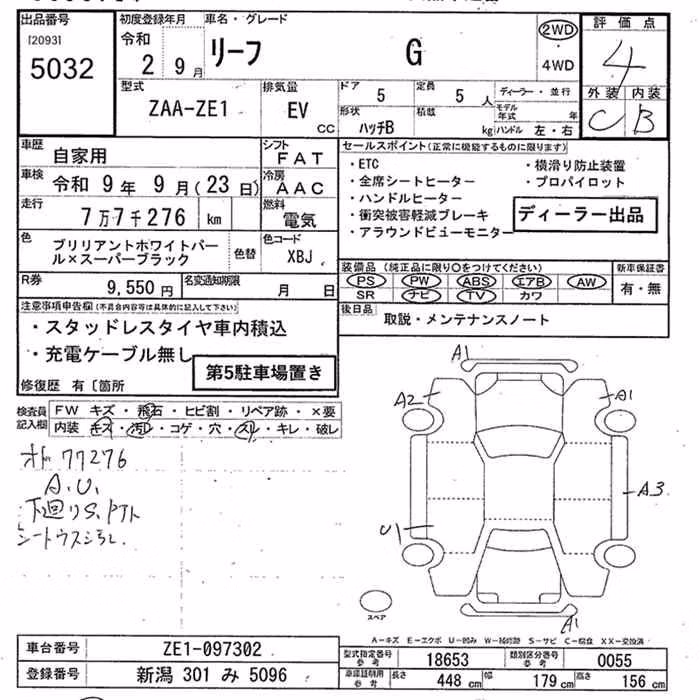 出品番号
[2093]
5032
初度登録年月
令和
2 9月
車名・グレード
リーフ G
2WD
・
4WD
評価点
4
外装 内装
C B
型式
ZAA-ZE1
排気量
EV
CC
ドア
5
定員
5人
形状
ハッチB
積載
kg
ディーラー・並行
モデル年式 年
ハンドル 左・右
車歴
自家用
シフト
FAT
車検
令和 9年 9月(23日)
冷房
AAC
走行
7万7千276 km
燃料
電気
色
ブリリアントホワイトパール×スーパーブラック
色替
色コード
XBJ
R券
9,550円
名変期限
月 日
セールスポイント(正常に機能するものに限ります)
・ETC
・全席シートヒーター
・ハンドルヒーター
・衝突被害軽減ブレーキ
・アラウンドビューモニター
・横滑り防止装置
・プロパイロット
ディーラー出品
装備品(純正品に限り○をつけてください)
PS PW ABS エアB AW
SR ナビ TV カワ
新車保証書
有・無
後日品
取説・メンテナンスノート
注意事項申告欄(不具合内容等は具体的に記入して下さい)
・スタッドレスタイヤ車内積込
・充電ケーブル無し
第5駐車場置き
修復歴 有〔箇所
検査員記入欄
FW キズ・飛石・ヒビ割・リペア跡・×要
内装 キズ・汚れ・コゲ・穴・スレ・キレ・破レ
オド 77276
A.U.
下廻りS,
シートウスシミ
A1
A2
A1
A3
U1
A1
スペア
A-キズ E-エクボ U-凹み W-補修跡 S-サビ C-腐食 XX-交換済
車台番号
ZE1-097302
登録番号
新潟 301 み 5096
型式指定番号
参考
18653
類別区分番号
参考
0055
車庫証明用
参考
長さ 448 cm
幅 179 cm
高さ 156 cm